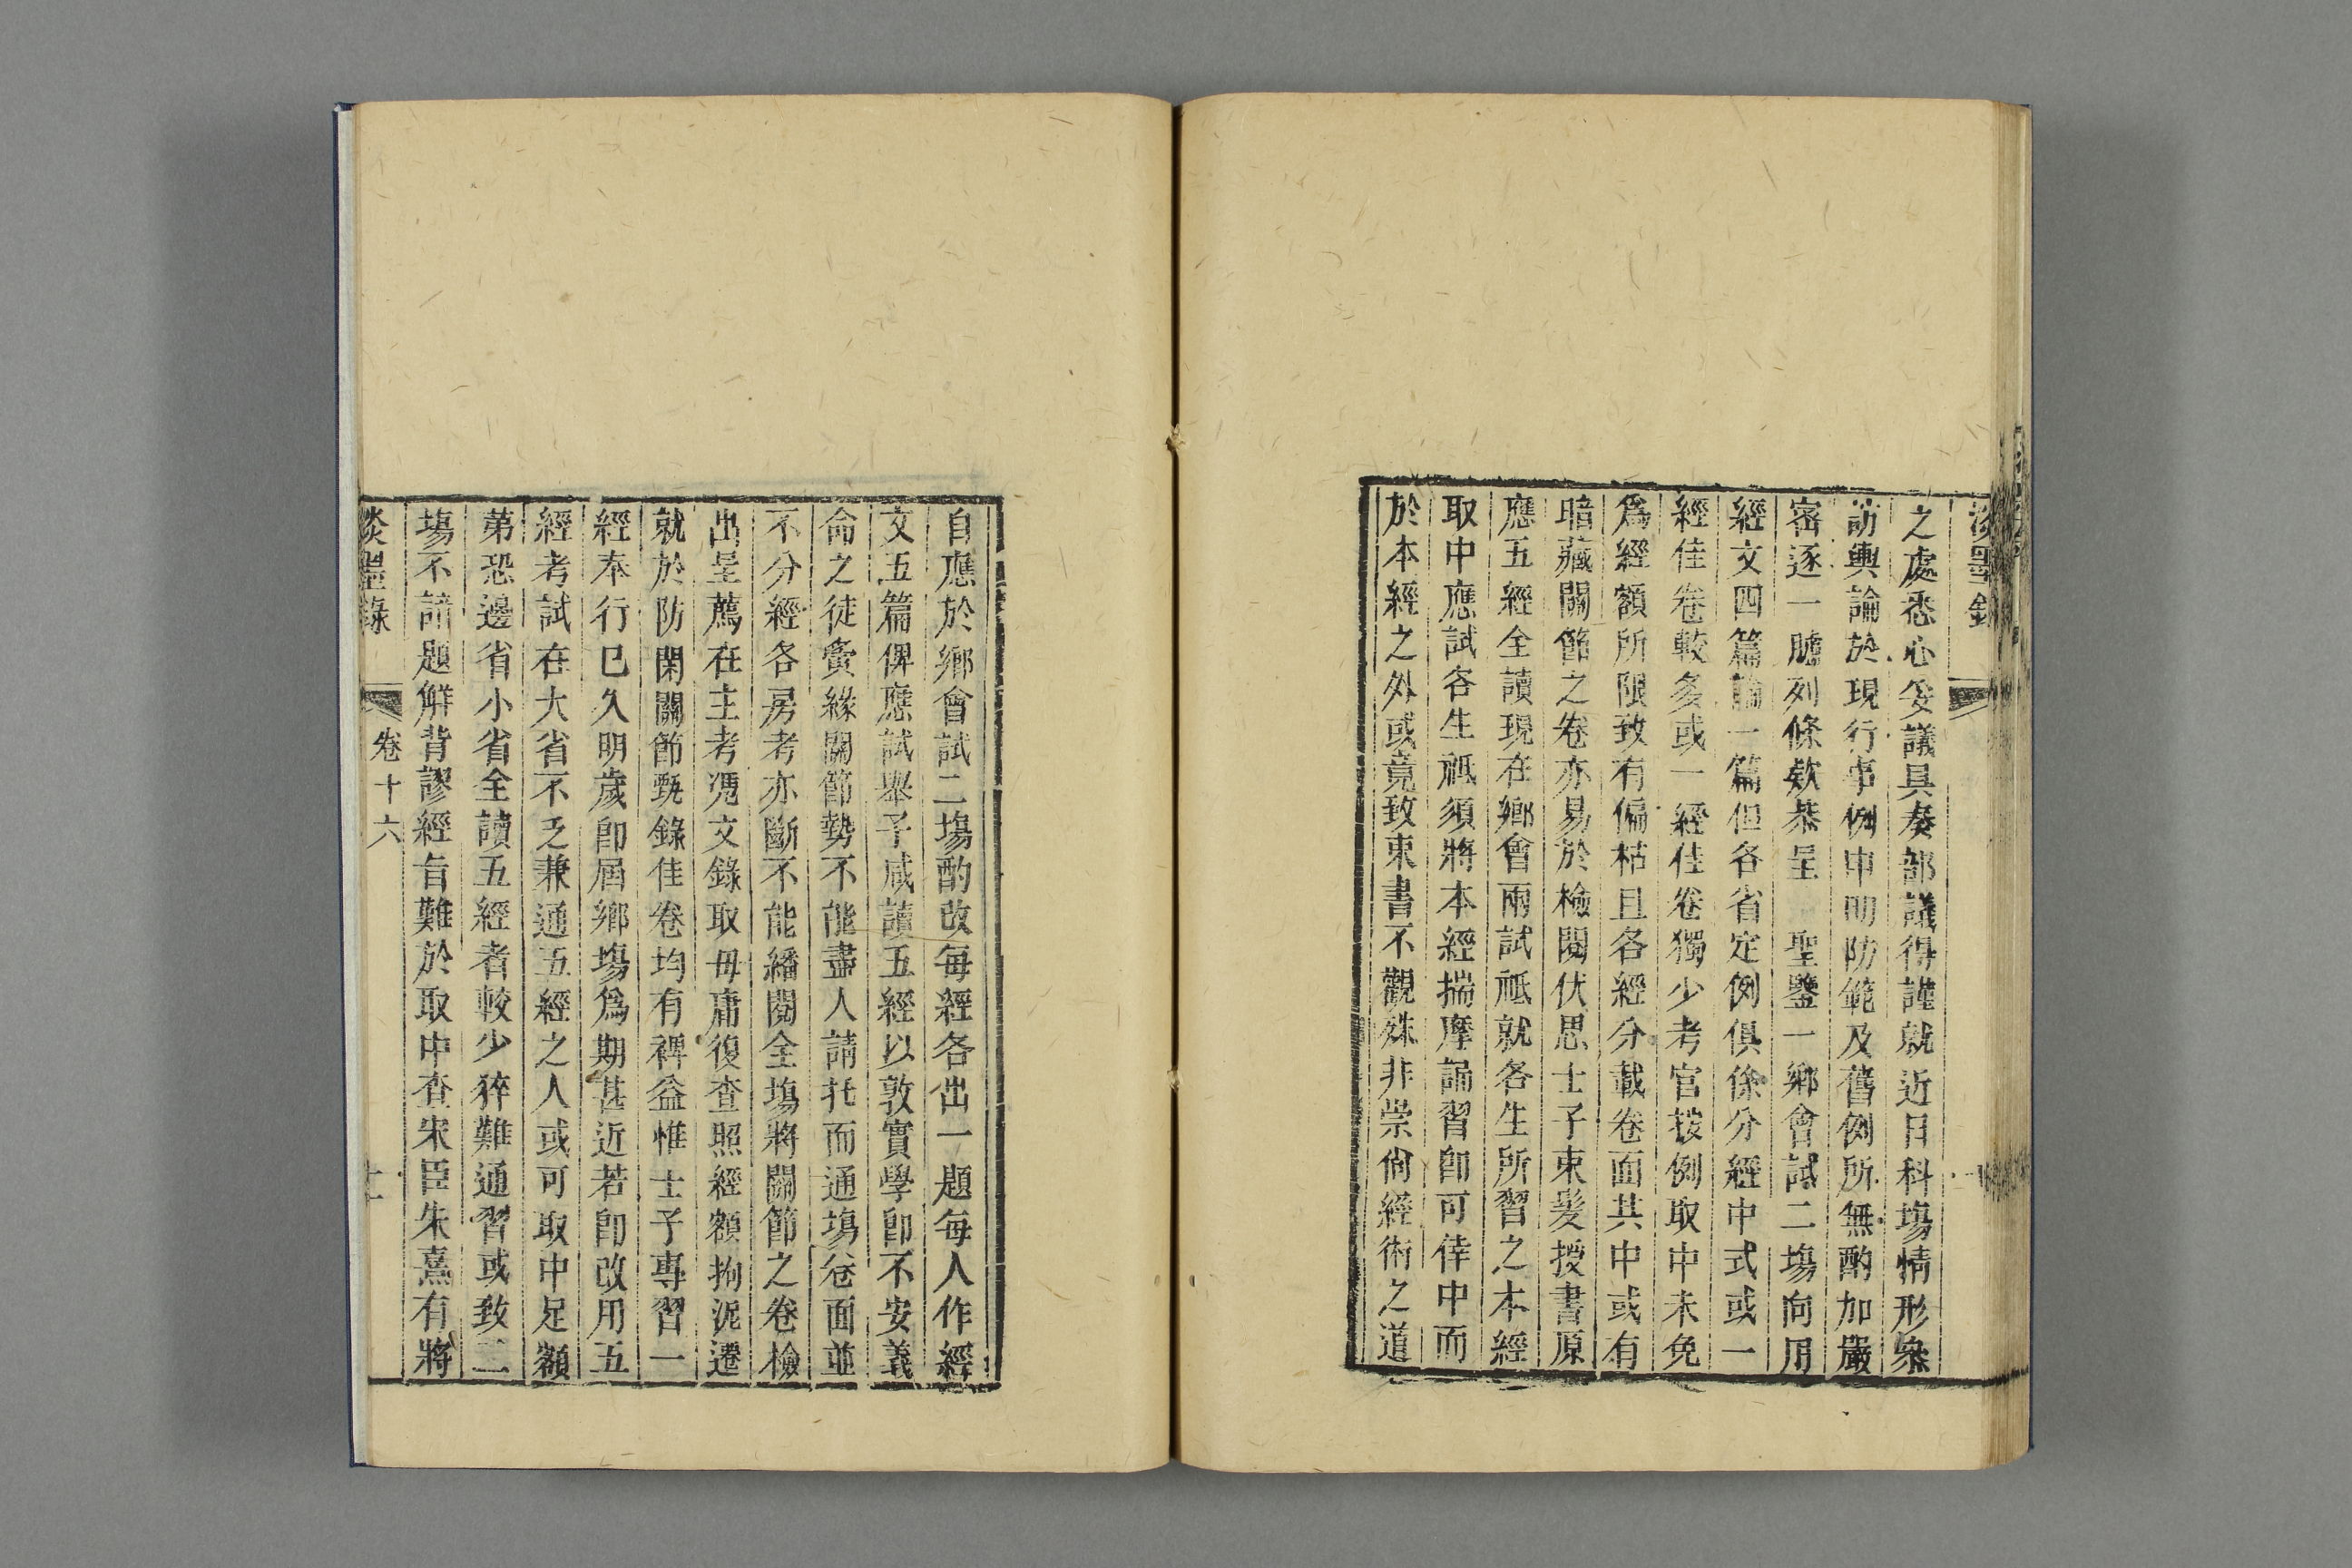 淡墨錄
之處悉心妥議具奏部議得謹就近日科塲情形叅
訪輿論於現行事例申明防範及舊例所無酌加嚴
密逐一臚列條欵恭呈 聖鑒一鄉會試二塲向用
經文四篇論一篇但各省定例俱係分經中式或一
經佳卷卷較多或一經佳卷獨少考官按例取中未免
爲經額所限致有偏枯且各經分載卷面其中或有
暗藏關節之卷亦易於檢閱伏思士子束髮授書原
應五經全讀現在鄉會兩試祗就各生所習之本經
取中應試各生祗須將本經揣摩誦習卽可倖中而
於本經之外或竟致束書不觀殊非崇尙經術之道
自應於鄉會試二塲酌改每經各出一題每人作經
文五篇俾應試舉子咸讀五經以敦實學卽不安義
命之徒夤緣關節勢不能盡人請托而通塲卷面並
不分經各房考亦斷不能繙閱全塲將關節之卷檢
出呈薦在主考憑文錄取毋庸復查照經額拘泥遷
就於防閑關節甄錄佳卷均有裨益惟士子專習一
經奉行已久明歲卽屆鄉塲爲期甚近若卽改用五
經考試在大省不乏兼通五經之人或可取中足額
第恐邊省小省全讀五經者較少猝難通習或致二
塲不諳題解背謬經旨難於取中查宋臣朱熹有將
淡墨錄 卷十六 十一